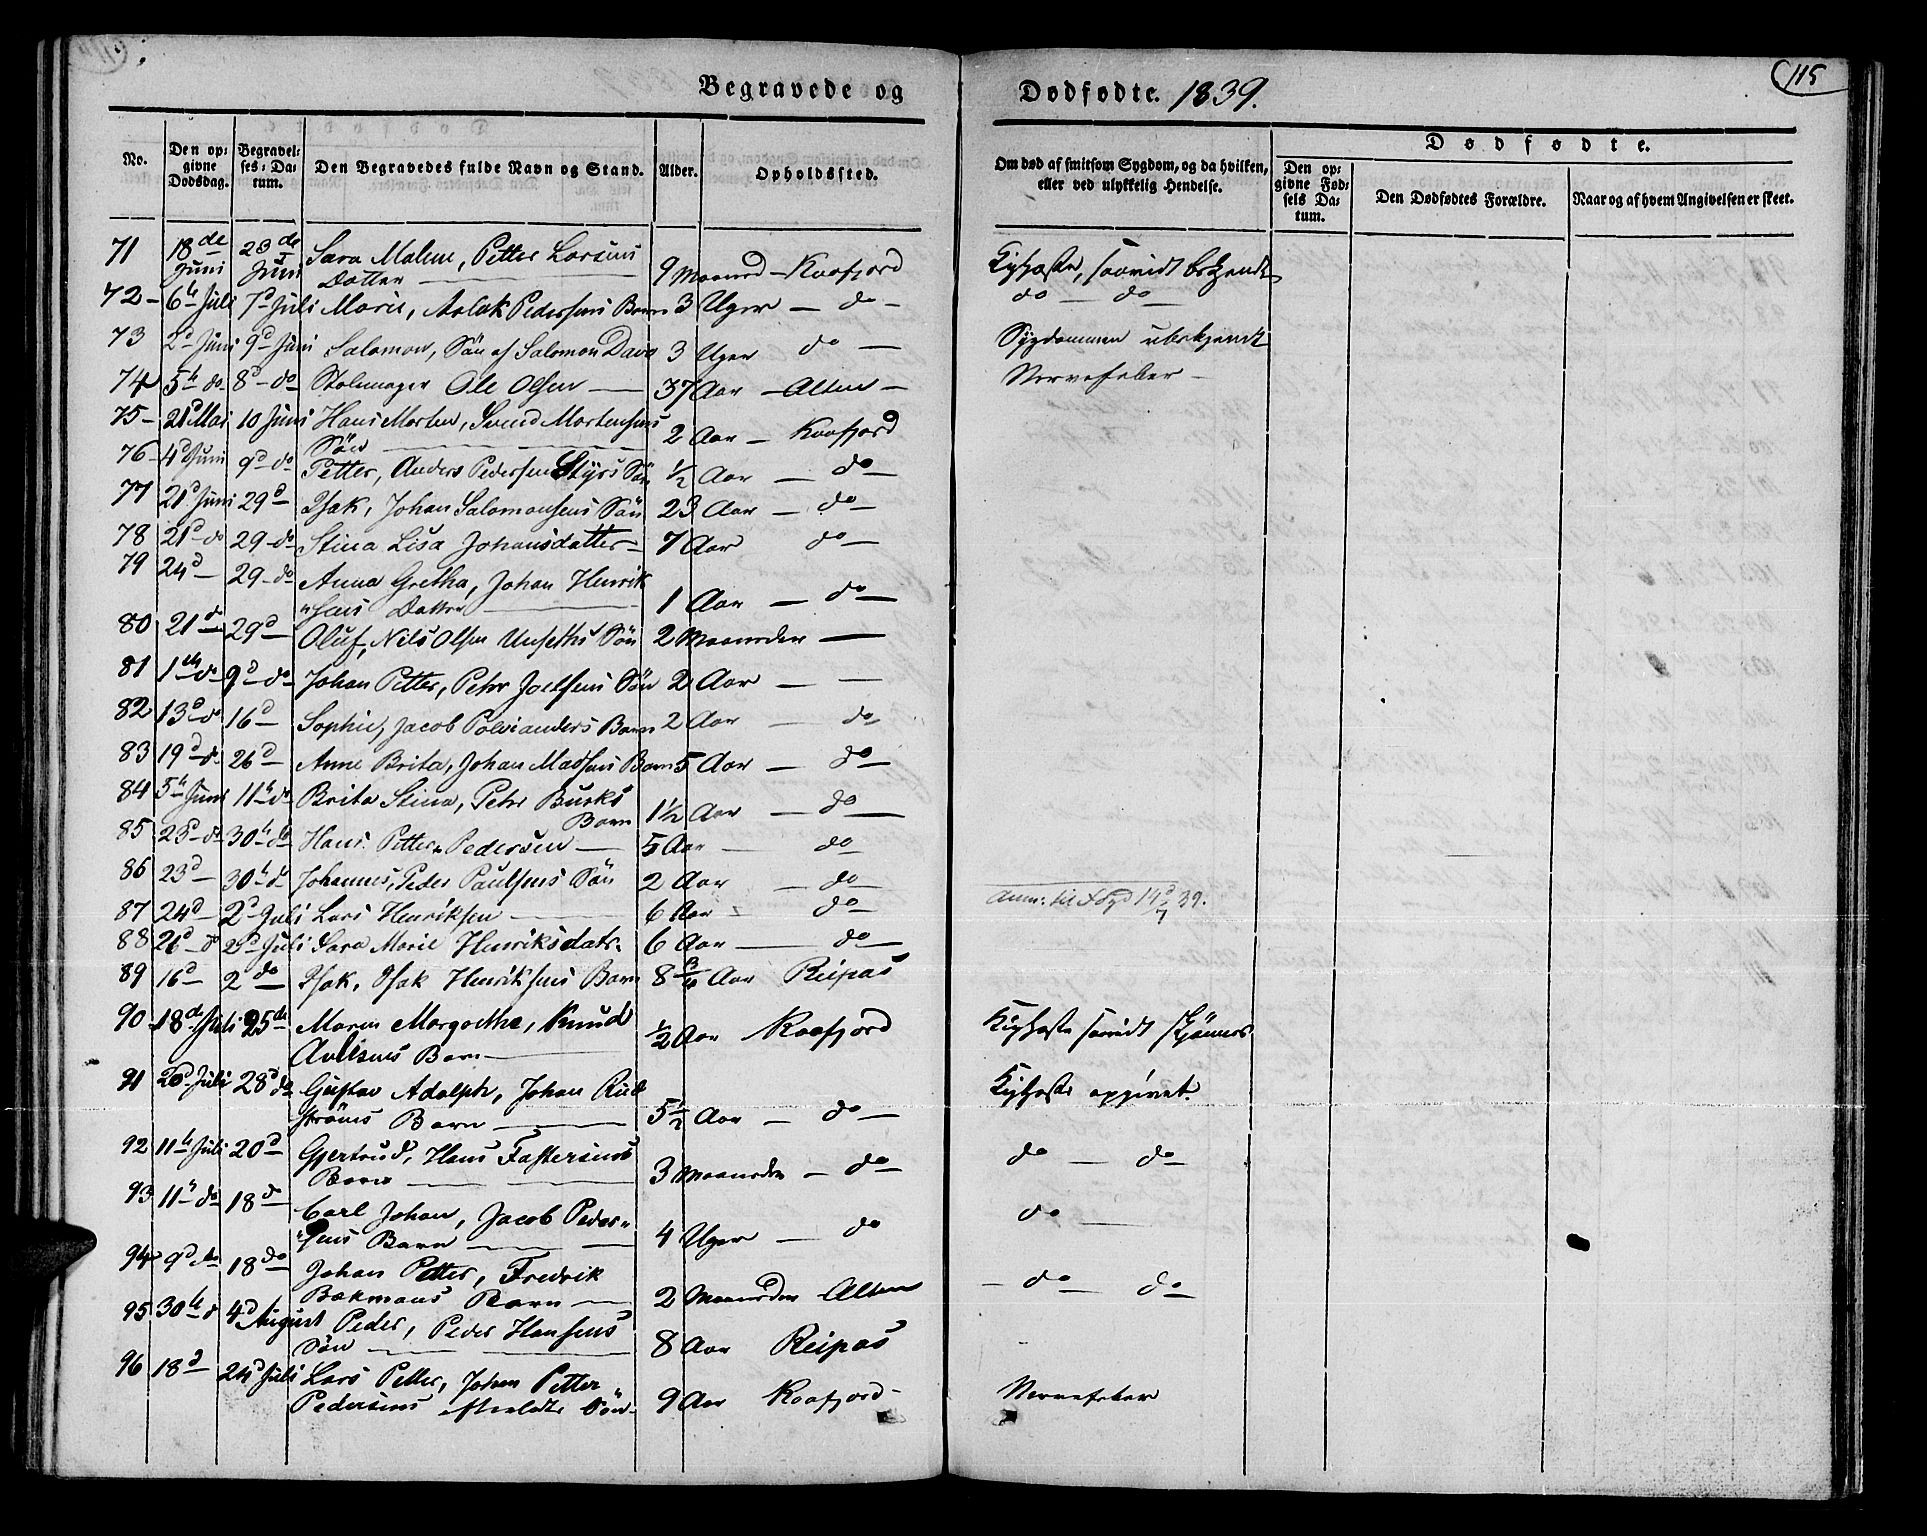 115
Begravede og Dødfødte. 1839.
No.
Den opgivne Dødsdag.
Begravelses-Datum.
Den Begravedes fulde Navn og Stand.
Alder.
Opholdssted.
Om død af smitsom Sygdom, og da hvilken, eller ved ulykkelig Hendelse.
Dødfødte.
Den opgivne Fødsels Datum.
Den Dødfødtes Forældre.
Naar og af hvem Angivelsen er skeet.
71 18de Juni 23de Juni Sara Malene, Petter Larsens Datter — 9 Maaned — Kaafjord Kighoste, saavidt bekjendt
72 – 6te Juli 7d Juli Marie, Aslak Pedersens Barn 3 Uger — do — do — do
73 2d Juni 9d Juni Salamon, Søn af Salamon Dava 3 Uger do — Sygdommen ubekjendt
74 5te do 8d do Ole Olsen — 37 Aar — Alten — Nervefeber —
75 – 21d Mai 10 Juni Hans Morten, Svend Mortensens Søn — 2 Aar — Kaafjord
76 – 4d Juni 9d do Petter, Anders Pedersen Styrs Søn ½ Aar — do
77 21d Juni 29d Isak, Johan Salomonsens Søn 23 Aar — do
78 21d do 29 do Stina Lisa Johansdatter — 7 Aar do
79 24d — 29 do Anna Gretha, Johan Henrik
"sens Datter — 1 Aar — do
80 21d 29d Oluf, Nils Olsen Unseths Søn 2 Maaneder —
81 1te do 9d do Johan Petter, Pehr Joelsens Søn 2 Aar — —
82 13d do 16d Sophie, Jacob Polvianders Barn 2 Aar — do
83 19d do 26d Anne Brita, Johan Madsens Barn 5 Aar — do
84 5te Juni 11te do Brita Stina, Pehr Busks Barn 1½ Aar — do
85 23d do 30te do Hans Petter Pedersen — 5 Aar — do
86 23d — 30te do Johannes, Peder Paulsens Søn 2 Aar — do
87 24d — 2d Juli Lars Henriksen — 6 Aar — do
Anm: til 14d/7 39.
88 26d do 2d Juli Sara Marie Henriksdatr. 6 Aar — do
89 16d 2 do Isak, Isak Henriksens Barn 8 Aar Reipas
90 18de Juli 25de Maren Margrethe, Knud
Barn — ½ Aar Kaafjord Kighoste saavidt skjønnes
91 26d Juli 28d do Gustav Adolph, Johan Rud
strøms Barn — 5½ Aar — do Kighoste opgivet
92 11te Juli 20d Gjertrud, Hans Fastersens
Barn — 3 Maaneder — do do — do
93 11te do 18do Carl Johan, Jacob Peder
"sens Barn — 4 Uger — do do —
94 9d do 18do Johan Petter, Fredrik
Bækmans Barn — 2 Maaneder — Alten — do do
95 30te d 4d August Peder, Peder Hansens
Søn — 8 Aar Reipas
96 18d 24d Juli Lars Petter, Johan Petter
Pedersens Søn 9 Aar Kaafjord — Nervefeber